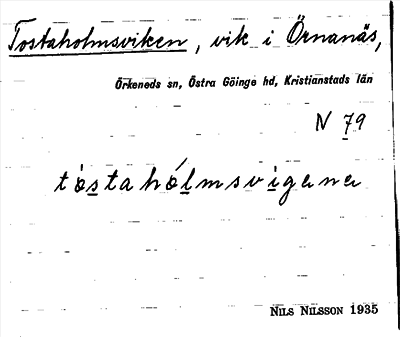 Tostaholmsviken, vik i Örnanäs,
Örkeneds sn, Östra Göinge hd, Kristianstads län
N 79
tòstahólmsvigena
NILS NILSSON 1935